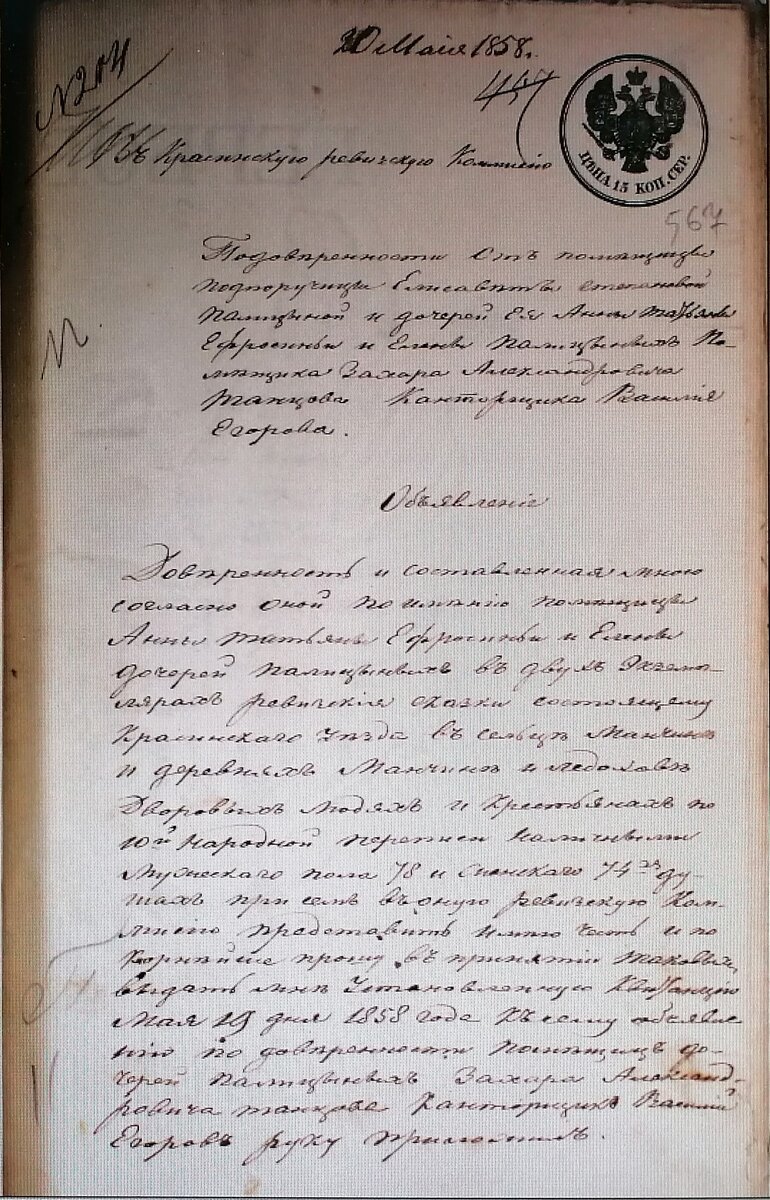 20 Маія 1858.
№ 204
457
Въ Краснинскую ревизскую Коммисію
ЦѢНА 15 КОП. СЕР.
567
Подовѣренности Отъ помѣщицы
подпоручицы Елисаветы степановой
палицыной и дочерей Ея Анны татьяны
Ефросиньи и Елены палицыныхъ По-
мѣщика Захара Александровича
танцова Канторщика Василія
Егорова.
Объявленіе
Довѣренность и составленная мною
согласно оной по имѣнію помѣщицы
Анны татьяны Ефросиньи и Елены
дочерей палицыныхъ въ двухъ Экземп-
лярахъ ревизскія сказки состоящему
Краснинскаго уѣзда въ сельцѣ Манчинѣ
и деревняхъ Манчинѣ и
Дворовыхъ людяхъ и Крестьянахъ по
10й народной переписи наличными
Мужескаго пола 78 и Женскаго 74 ду-
шахъ при семъ въ оную ревизскую Ком-
мисію представить имѣю честь и по
Корнѣйше прошу въ принятіи таковыхъ
выдать мнѣ Установленную Квитанцію
Мая 19 дня 1858 года Къ сему объявле
нію по довѣренности помѣщицъ до-
черей палицыныхъ Захара Александ-
ровича танцова Канторщикъ Василій
Егоровъ руку приложилъ.